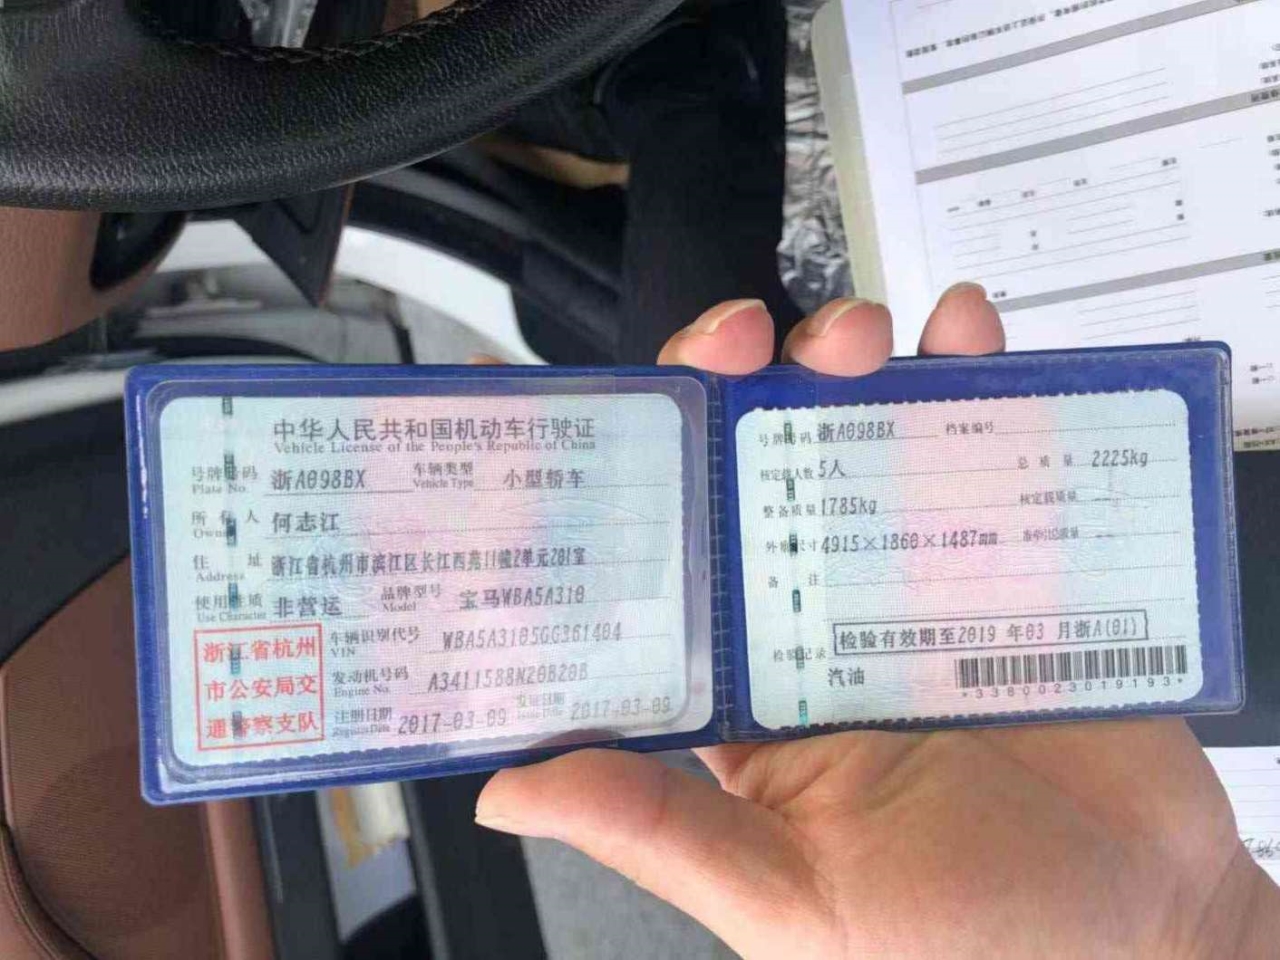 中华人民共和国机动车行驶证
Vehicle License of the People's Republic of China
号牌号码 浙A098BX 车辆类型 小型轿车
Plate No. Vehicle Type
所有人 何志江
Owner
住址 浙江省杭州市滨江区长江西苑11幢2单元201室
Address
使用性质 非营运 品牌型号 宝马WBA5A310
Use Character Model
浙江省杭州
市公安局交
通警察支队
车辆识别代号 WBA5A3105GG361404
VIN
发动机号码 A3411588N20B20B
Engine No.
注册日期 2017-03-09 发证日期 2017-03-09
Register Date Issue Date
号牌号码 浙A098BX 档案编号
核定载人数 5人 总质量 2225kg
整备质量 1785kg 核定载质量
外廓尺寸 4915×1860×1487mm 准牵引总质量
备注
检验记录 检验有效期至2019年03月浙A(01)
汽油
*3380023019193*